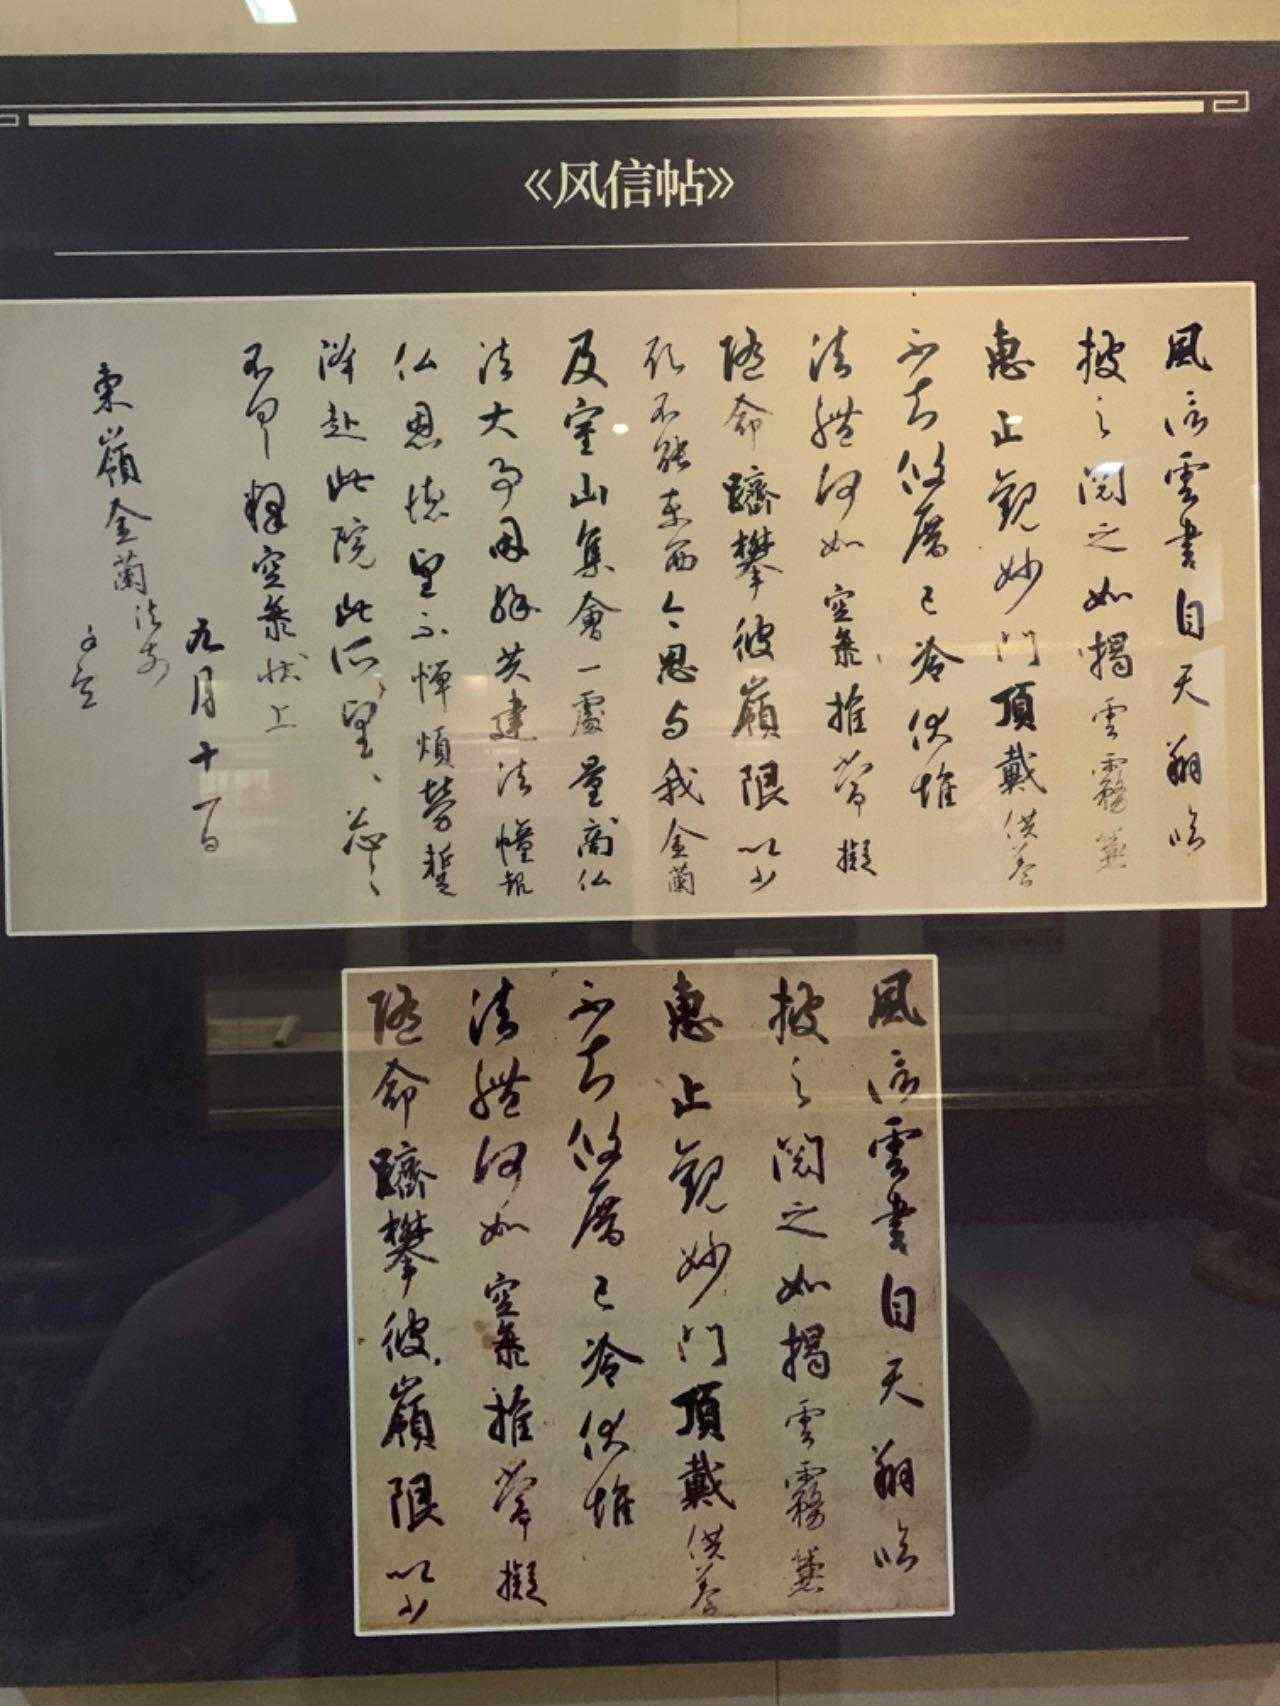 《风信帖》
風信雲書自天翔臨
披之閱之如揭雲霧兼
惠止觀妙門頂戴供養
不知攸厝已冷伏惟
法體何如空海推常擬
隨命躋攀彼嶺限以少
願不能東西今思与我金蘭
及室山集會一處量商仏
法大事因緣共建法幢報
仏恩德望不憚煩勞蹔
降赴此院此所望々忩々
不具釋空海狀上
九月十一日
東嶺金蘭法前
謹空
風信雲書自天翔臨
披之閱之如揭雲霧兼
惠止觀妙門頂戴供養
不知攸厝已冷伏惟
法體何如空海推常擬
隨命躋攀彼嶺限以少